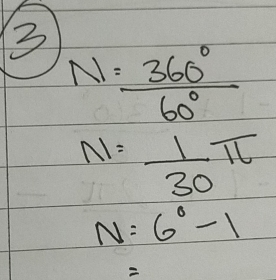 3
N = 360° / 60°
N = 1 / 30 π
N = 6° - 1
=